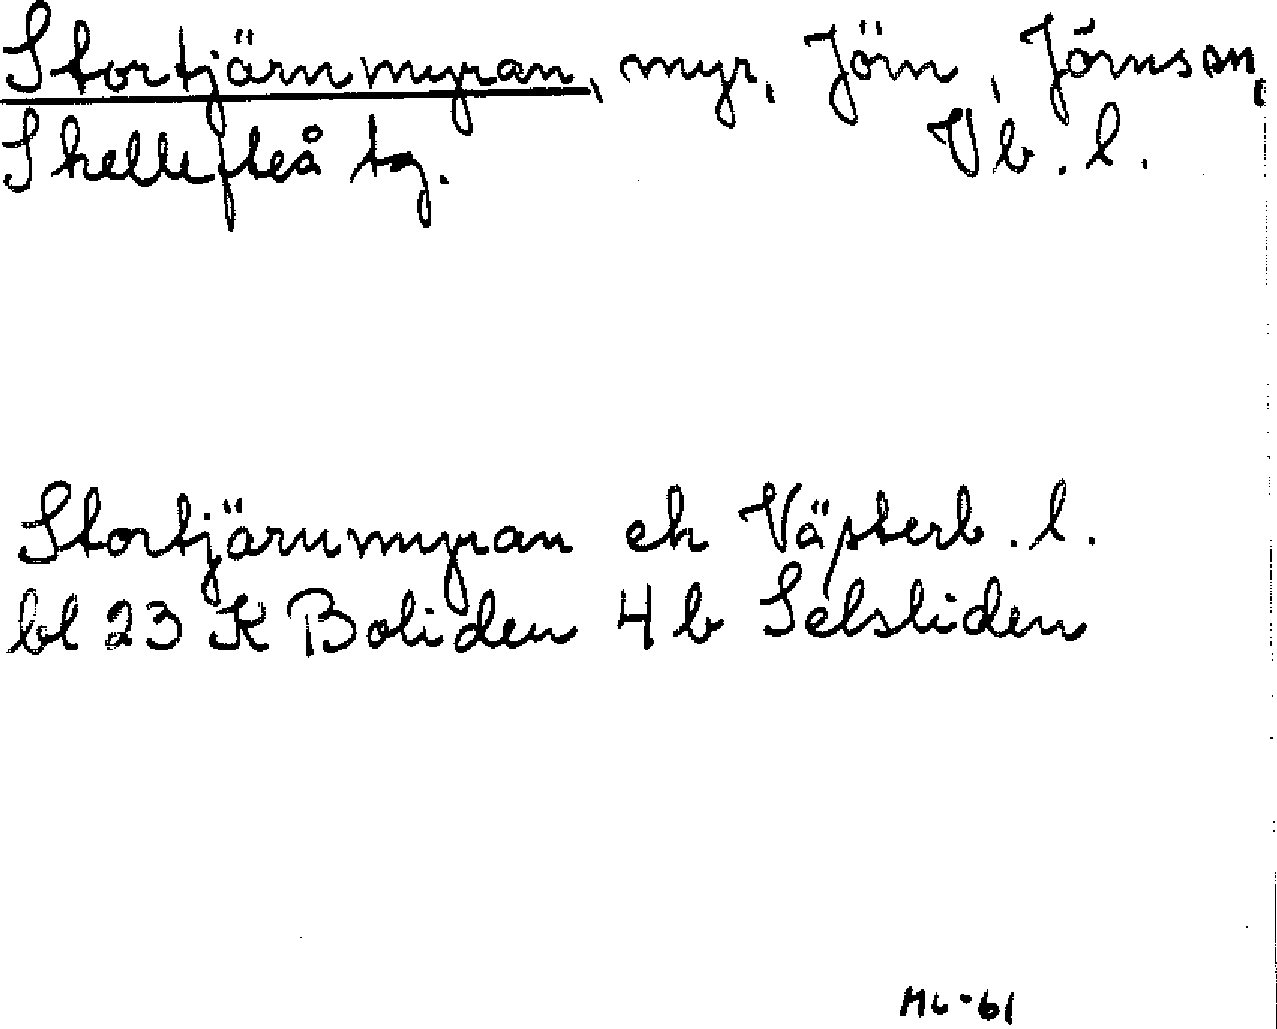 Stortjärnmyran, myr, Jörn, Jörns sn,
Skellefteå tg. Vb. l.
Stortjärnmyran ek Västerb. l.
bl 23 K Boliden 4 b Selsliden